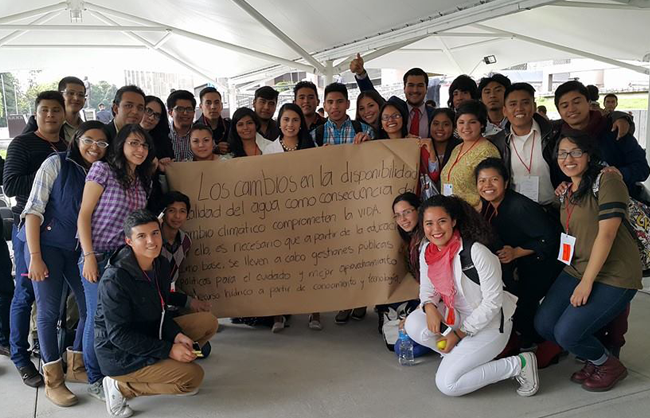 Los cambios en la disponibilidad
calidad del agua como consecuencia de
cambio climático comprometen la VIDA
ella es necesario que a partir de la educa
como base, se lleven a cabo gestiones públicas
políticas para el cuidado y mejor aprovechamiento
recurso hídrico a partir de conocimiento y tecnología